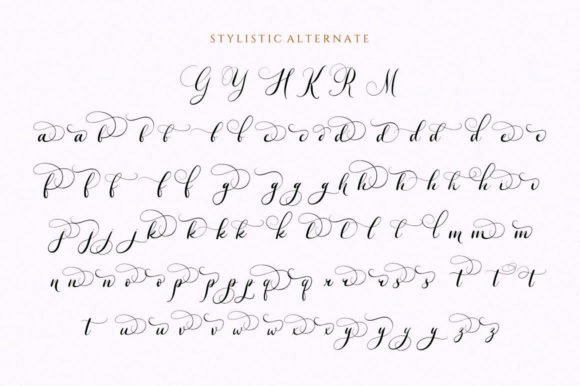 STYLISTIC ALTERNATE
G Y H K R M
a a b b b b b c c d d d d d d e e
f f f f f g g g g h h h h h h i i
j j j j k k k k k l l l l l m m m
n n n o o p p p p q q r r s s t t t
t u u v v w w x x y y y y z z